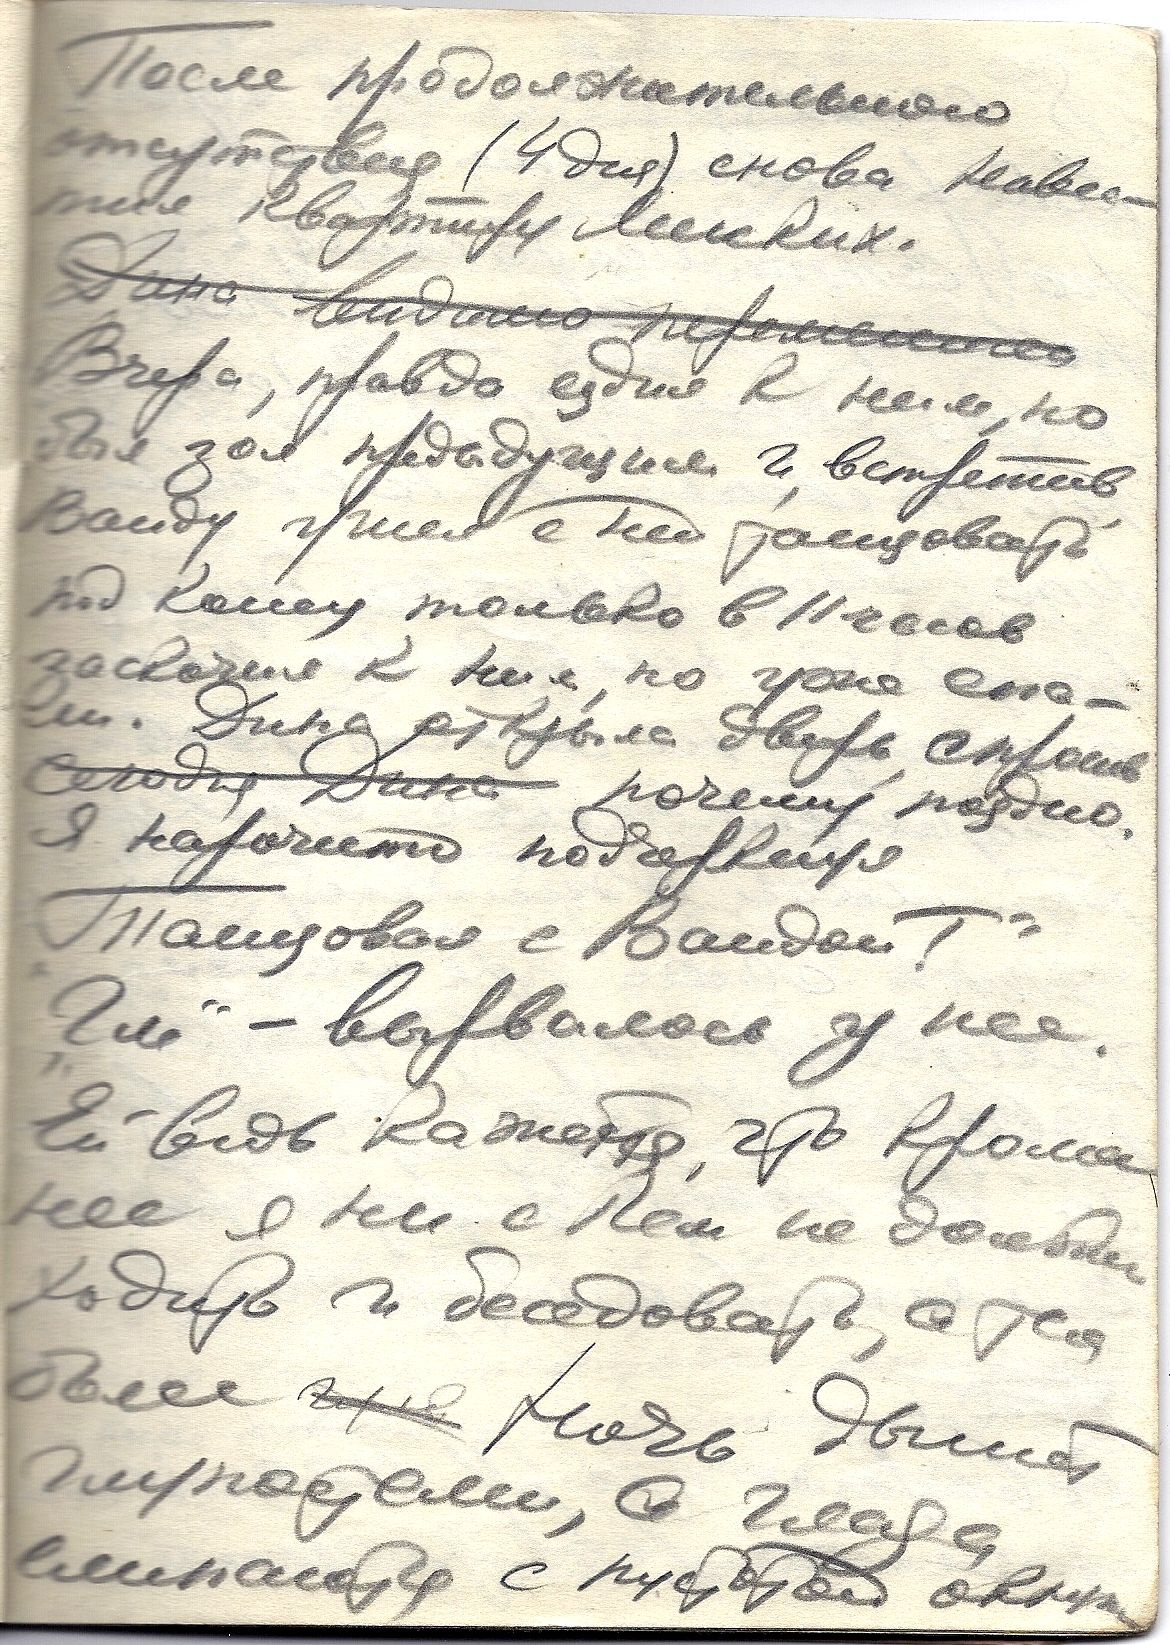 После продолжительного
отсутствия (4 дня) снова навес-
тил квартиру Минских.
Дина видимо
Вчера, правда ездил к ним, но
был зол предыдущим и, встретив
Ванду ушел с ней танцовать
под конец только в 11 часов
заскочил к ним, но уже спа-
ли. Дина открыла дверь, спросив
сегодня Дина почему поздно.
Я нарочито подчеркнул
Танцовал с Вандой!"
"Гм" – вырвалось у нее.
Ей ведь кажется, что кроме
нее я ни с кем не должен
ходить и беседовать, а тем
более ночь дышит
глупостями, а глаза
слипаются с пустотой